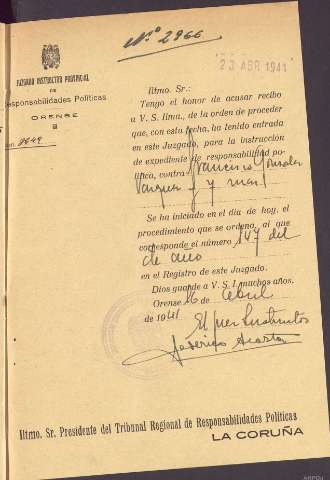 Nº 2966
23 ABR 1941
JUZGADO INSTRUCTOR PROVINCIAL
DE
Responsabilidades Políticas
ORENSE
Iltmo. Sr.:
Tengo el honor de acusar recibo
a V. S. Iltma., de la orden de proceder
que, con esta fecha, ha tenido entrada
en este Juzgado, para la instrucción
de expediente de responsabilidad po-
lítica, contra Francisco Gonzalez
Vazquez y
Se ha iniciado en el día de hoy, el
procedimiento que se ordena, al que
corresponde el número 147 del
de año
en el Registro de este Juzgado.
Dios guarde a V. S. I. muchos años.
Orense 16 de Abril
de 1941
El Juez Instructor
Iltmo. Sr. Presidente del Tribunal Regional de Responsabilidades Políticas
LA CORUÑA